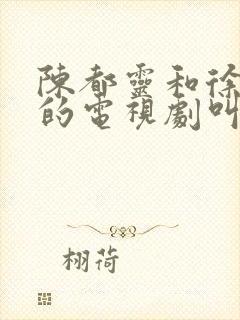 陳都靈和徐
的電視劇叫
栩荷